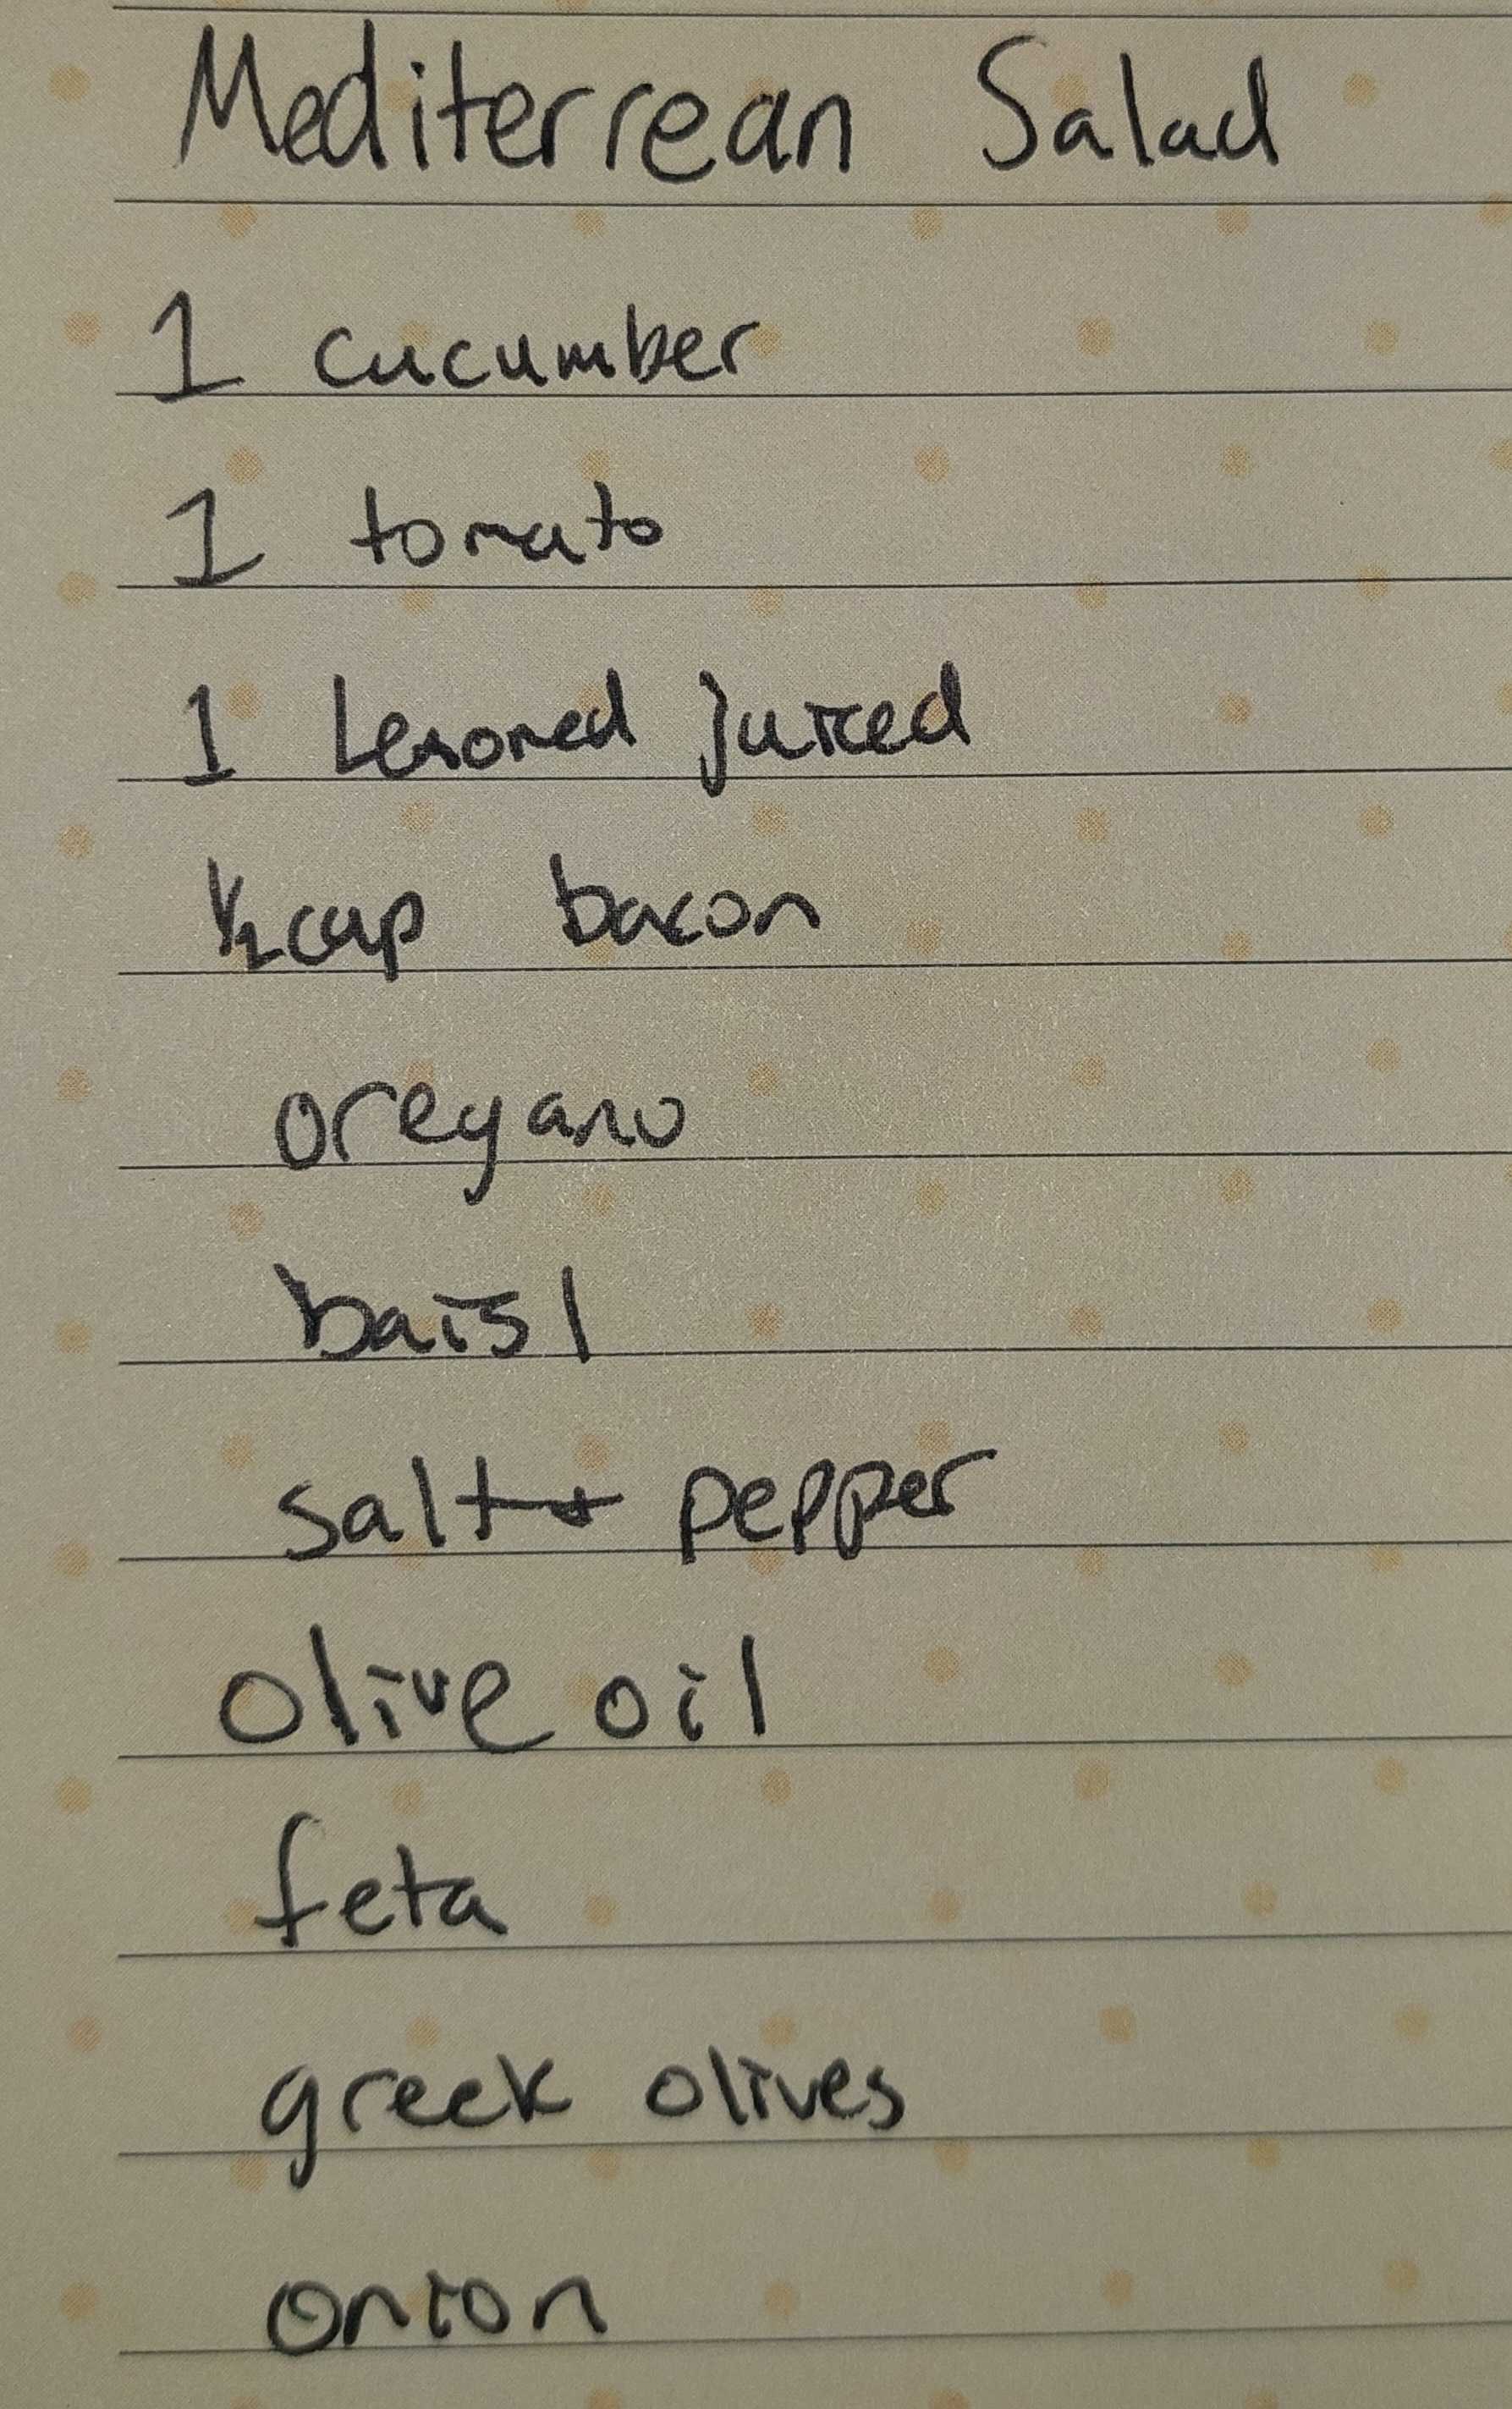 Mediterrean Salad
1 cucumber
1 tomato
1 Lemoned juiced
1/2 cup bacon
oregano
baisl
salt + pepper
olive oil
feta
greek olives
onion